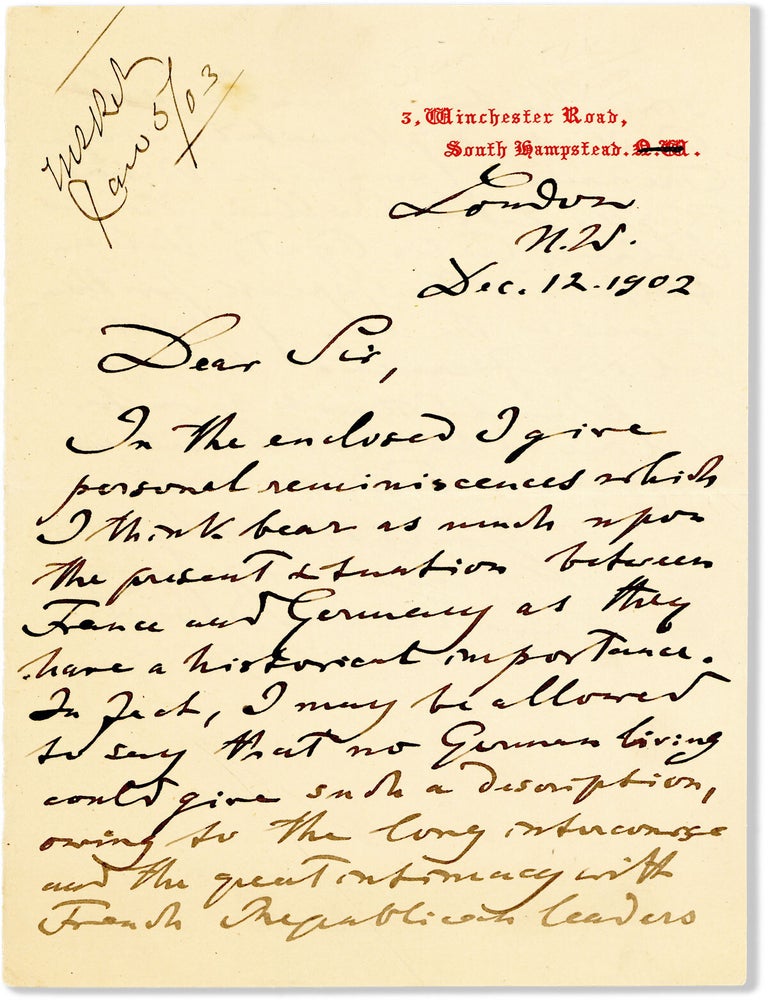 Jan 5/03
3, Winchester Road,
South Hampstead. N.W.
London
N.W.
Dec. 12. 1902
Dear Sir,
In the enclosed I give
personal reminiscences which
I think bear as much upon
the present situation between
France and Germany as they
have a historical importance.
In fact, I may be allowed
to say that no German living
could give such a description,
owing to the long intercourse
and the great intimacy with
French Republican leaders